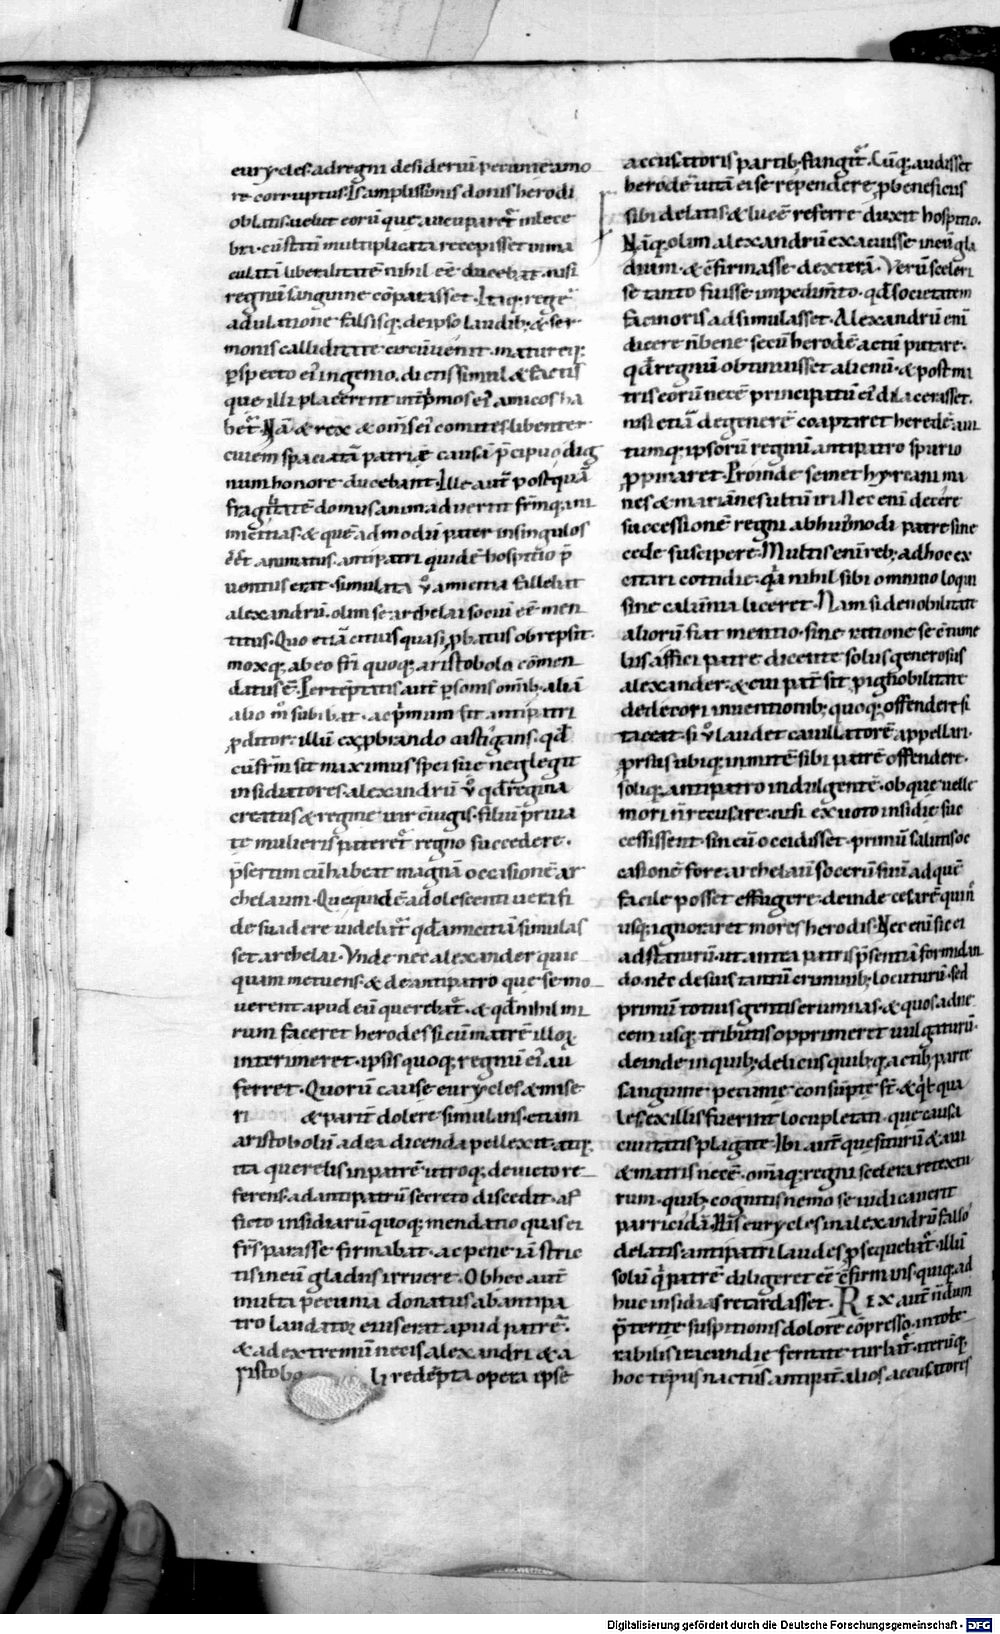 eurycles. ad regni desideriū pecunie amo
re corruptus. Is amplissimis donis herodi
oblatis. uelut eorū que aucuparet᷑ illece
bra. cū statī multiplicata recepisset inma
culatā liberalitatē nihil eē ducebat. nisi
regnū sanguine cōparasset. Itaq; regē
adulatione falsisq; de ipso laudib; & ser
monis calliditate circūuenit. matureq;
ꝑspecto ei᷒ ingenio. dictis simul & factis
que illi placerent int̄ p̄mos ei᷒ amicos ha
bet᷑. Nā & rex & om̄s ei᷒ comites libenter
ciuem spaciatā patrię causa p̄cipuo dig
num honore ducebant. Ille aut̄ postquā
fragilitatē domus animaduertit fr̄mq; ini
micitias. & quē admodū pater in singulos
eēt animatus. antipatri quidē hospitio p̄
uentus erat. simulata ů amicitia fallebat
alexandrū. olim se archelai sociū eē men
titus. Quo etiā citius quasi ꝓbatus obrepsit.
moxq; ab eo fr̄i quoq; aristobolo cōmen
datus ē. Pertēptatis autē ꝑsonis omīb; aliā
alio m̊ subibat. ac p̄mum fit antipatri
ꝓditor. illū exꝓbrando castigans. qd̄
cū fr̄m sit maximus spei sue neglegit
insidiatores. alexandrū ů qd̄ regina
creatus & regine uir ciugis. filiū priua
te mulieris pateret᷑ regno succedere.
p̄sertim cū habeat magnā occasionē ar
chelaum. Que quidē adolescenti ueri fi
de suadere uidebat᷑ qd̄ amicitiā simulas
set archelai. Vnde nec alexander quic
quam metuens. & de antipatro que se mo
uerent apud eū querebat᷑. & qd̄ nihil mi
rum faceret herodes si cū matrē illoꝝ
interimeret. ipsis quoq; regnū ei᷒ au
ferret. Quorū cause eurycles & mise
ri & parit̄ dolere simulans. etiam
aristobolū ad ea dicenda pellexit. atq;
ita querelis in patrē utroq; deuictore
ferens. ad antipatrū secreto discedit. at
ficto insidiarū quoq; mendatio quasi ei
fr̄s parasse firmabat. ac pene iā stric
tis in eū gladiis irruere. Ob hec aut̄
multa pecunia donatus ab antipa
tro laudator eius erat apud patrē.
& ad extremū necis alexandri & a
ristobo li redēpta opera ipse
accusatoris partib; fungit᷑. Cūq; audisset
herodē uitā ei se rependere ꝓ beneficiis
sibi delatis. & lucē referre duxit hospitio.
Nāq; olim alexandrū exacuisse in eū gla
dium. & c̄firmasse dexterā. Verū sceleri
se tanto fuisse impedimto. qd̄ societatem
facinoris adsimulasset. Alexandrū enī
dicere n̄ bene secū herodē actū putare.
qd̄ regnū obtinuisset alienū. & post ma
tris eorū necē principatū ei᷒ dilacerasset.
nisi etiā degenerē coaptaret heredē. aui
tumq; ipsorū regnū antipatro spurio
ꝓpinaret. Proinde semet hyrcani ma
nes & mariānes ultū iri. Nec enī decere
successionē regni ab huiūmodi patre sine
cede suscipere. Multis enī reb; ad hoc ex
citari cotidie. qa nihil sibi omnino loqui
sine calūnia liceret. Nam si de nobilitate
aliorū fiat mentio. sine ratione se cōtume
liis affici patre dicente solus generosus
alexander. & cui pat̄ sit pignobilitate
dedecori. in uenationib; quoq; offendere si
taceat. si ů laudet cauillatorē appellari.
ꝓrsus ubiq; in mitē sibi patrē offendere.
soliq; antipatro indulgentē. ob que uelle
mori n̄ recusare. nisi ex uoto insidie sue
cessissent. sin eū occidisset. primū salutis oc
casionē fore archelaū socerū suū ad quē
facile posset effugere. deinde cesarē qui n̄
usq; ignoraret mores herodis. Nec enī sic ei
adstaturū. ut antea patris p̄sentiā formidan
donēc de suis tantū criminib; locuturū. sed
primū totius gentis erumnas. & quos ad ne
cem usq; tributis opprimeret uulgaturū.
deinde in quib; deliciis quib; q; actib; parte
sanguine pecunie consūpte st̄. & qꝰ qua
les ex illis fuerint locupletati. que causa
ciuitatis plagate. Ibi aut̄ quesiturū & aui
& matris necē. om̄iaq; regni scelera retextu
rum. quib; cognitis nemo se iudicauerit
parricidā. His eurycles in alexandrū falso
delatis. antipatri laudes ꝓsequebat᷑. illū
solū q̇ patrē diligeret eē c̄firmans. quiq; ad
huc insidias retardasset. Rex aut̄ n̄dum
p̄terite suspitionis dolore cōpresso. intole
rabilis iracundie feritate turbat᷑. iterūq;
hoc tēpus nactus antipat̄. alios accusatores
Digitalisierung gefördert durch die Deutsche Forschungsgemeinschaft - DFG